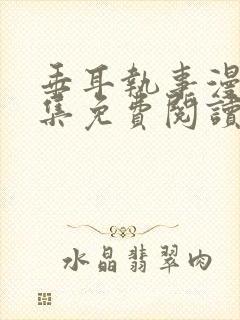 垂耳執事漫
集免費閱讀
水晶翡翠肉